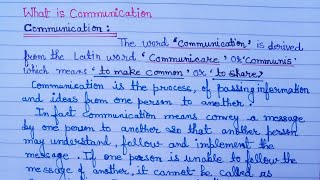 What is Communication
Communication :
The word 'communication' is derived
from the Latin word 'Communicare' or 'Communis'
which means 'to make common' or 'to share'
Communication is the process, of passing information
and ideas from one person to another.
In fact communication means convey a message
by one person to another so that another person
may understand, follow and implement the
message. If one person is unable to follow the
message of another, it cannot be called as